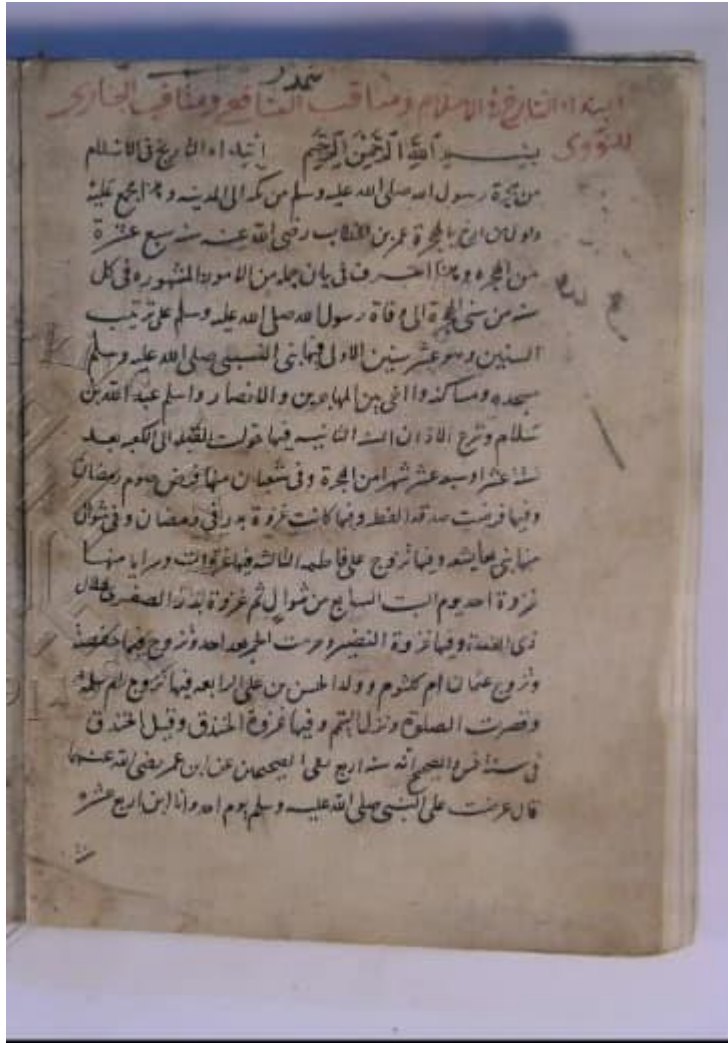 ابتداء التاريخ في الاسلام ومناقب الشافعي ومناقب البخاري
للنووي
بسم الله الرحمن الرحيم ابتداء التاريخ في الاسلام
من هجرة رسول الله صلى الله عليه وسلم من مكة الى المدينه وهذا مجمع عليه
واول من ارخ بالهجرة عمر بن الخطاب رضي الله عنه سنه سبع عشرة
من الهجره وهذا احرف في بيان جمله من الامور المشهوره في كل
سنه من سني الهجرة الى وفاة رسول الله صلى الله عليه وسلم على ترتيب
السنين وهو عشر سنين الاولى فيها بنى النبي صلى الله عليه وسلم
مسجده ومساكنه واخى بين المهاجرين والانصار واسلم عبد الله بن
سلام وشرع الاذان السنه الثانيه فيها حولت القبله الى الكعبه بعد
سته عشر او سبعه عشر شهرا من الهجرة وفي شعبان منها فرض صوم رمضان
وفيها فرضت صدقه الفطر وفيها كانت غزوة بدر في رمضان وفي شوال
منها بنى بعايشه وفيها تزوج علي فاطمه الثالثه فيها غزوات وسرايا منها
غزوة احد يوم السبت السابع من شوال ثم غزوة بدر الصغرى هلال
ذي القعدة وفيها غزوة النضير وحرمت الخمر بعد احد وتزوج فيها حفصة
وتزوج عثمان ام كلثوم وولد الحسن بن علي الرابعه فيها تزوج ام سلمه
وقصرت الصلوة ونزل التيمم وفيها غزوة الخندق وقيل الخندق
في سنه خمس والصحيح انه سنه اربع ففي الصحيحين عن ابن عمر رضي الله عنهما
قال عرضت على النبي صلى الله عليه وسلم يوم احد وانا ابن اربع عشره